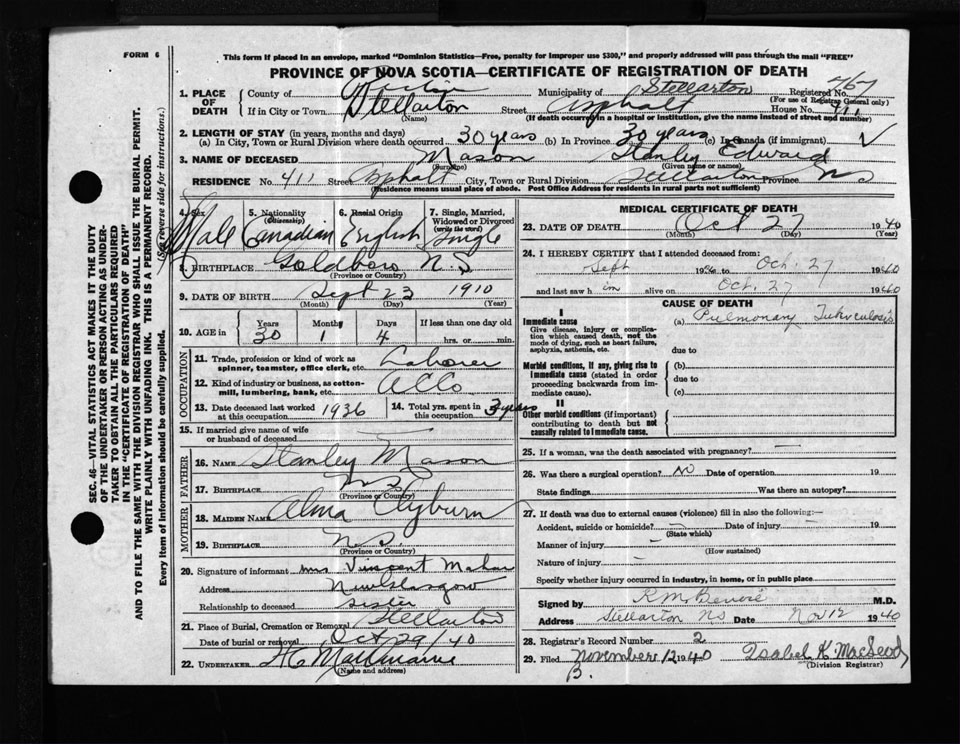 FORM 6
This form if placed in an envelope, marked "Dominion Statistics—Free, penalty for improper use $300," and properly addressed will pass through the mail "FREE"
PROVINCE OF NOVA SCOTIA—CERTIFICATE OF REGISTRATION OF DEATH
1. PLACE OF DEATH County of Municipality of Stellarton Registered No. 767
(For use of Registrar General only)
If in City or Town Stellarton Street Asphalt House No. 411
(Name) (If death occurred in a hospital or institution, give the name instead of street and number)
2. LENGTH OF STAY (in years, months and days)
(a) In City, Town or Rural Division where death occurred 30 years (b) In Province 30 years (c) In Canada (if immigrant)
3. NAME OF DECEASED Mason Stanley Edward
(Surname) (Given name or names)
RESIDENCE No. 411 Street Asphalt City, Town or Rural Division Stellarton Province N S
(Residence means usual place of abode. Post Office Address for residents in rural parts not sufficient)
4. Sex Male
5. Nationality (Citizenship) Canadian
6. Racial Origin English
7. Single, Married, Widowed or Divorced (write the word) Single
8. BIRTHPLACE Goldboro N.S
(Province or Country)
9. DATE OF BIRTH Sept 23 1910
(Month) (Day) (Year)
10. AGE in Years 30 Months 1 Days 4 If less than one day old hrs. or min.
OCCUPATION
11. Trade, profession or kind of work as spinner, teamster, office clerk, etc. Laborer
12. Kind of industry or business, as cotton-mill, lumbering, bank, etc.
13. Date deceased last worked at this occupation 1936
14. Total yrs. spent in this occupation 3 years
15. If married give name of wife or husband of deceased
FATHER
16. NAME Stanley Mason
17. BIRTHPLACE N S
(Province or Country)
MOTHER
18. MAIDEN NAME Alma Clyburn
19. BIRTHPLACE N.S.
(Province or Country)
20. Signature of informant Mrs Vincent
Address New Glasgow
Relationship to deceased sister
21. Place of Burial, Cremation or Removal Stellarton
Date of burial or removal Oct 29/40
22. UNDERTAKER
(Name and address)
MEDICAL CERTIFICATE OF DEATH
23. DATE OF DEATH Oct 27 1940
(Month) (Day) (Year)
24. I HEREBY CERTIFY that I attended deceased from:
Sept 19 to Oct. 27 1940
and last saw him alive on Oct. 27 1940
CAUSE OF DEATH
I
Immediate cause (a) Pulmonary Tuberculosis
Give disease, injury or complication which caused death, not the mode of dying, such as heart failure, asphyxia, asthenia, etc.
due to
Morbid conditions, if any, giving rise to immediate cause (stated in order proceeding backwards from immediate cause).
(b)
due to
(c)
II
Other morbid conditions (if important) contributing to death but not causally related to immediate cause.
25. If a woman, was the death associated with pregnancy? —
26. Was there a surgical operation? No Date of operation 19
State findings Was there an autopsy?
27. If death was due to external causes (violence) fill in also the following:—
Accident, suicide or homicide? — Date of injury — 19
(State which)
Manner of injury —
(How sustained)
Nature of injury —
Specify whether injury occurred in industry, in home, or in public place
Signed by M.D.
Address Stellarton NS Date Nov 12 1940
28. Registrar's Record Number 2
29. Filed November 12 1940 Isabel K MacLeod
(Division Registrar)
B.
SEC. 46—VITAL STATISTICS ACT MAKES IT THE DUTY
OF THE UNDERTAKER OR PERSON ACTING AS UNDERTAKER TO OBTAIN ALL THE PARTICULARS REQUIRED
IN THE "CERTIFICATE OF REGISTRATION OF DEATH"
AND TO FILE THE SAME WITH THE DIVISION REGISTRAR WHO SHALL ISSUE THE BURIAL PERMIT.
WRITE PLAINLY WITH UNFADING INK. THIS IS A PERMANENT RECORD.
Every item of information should be carefully supplied. (See reverse side for instructions.)